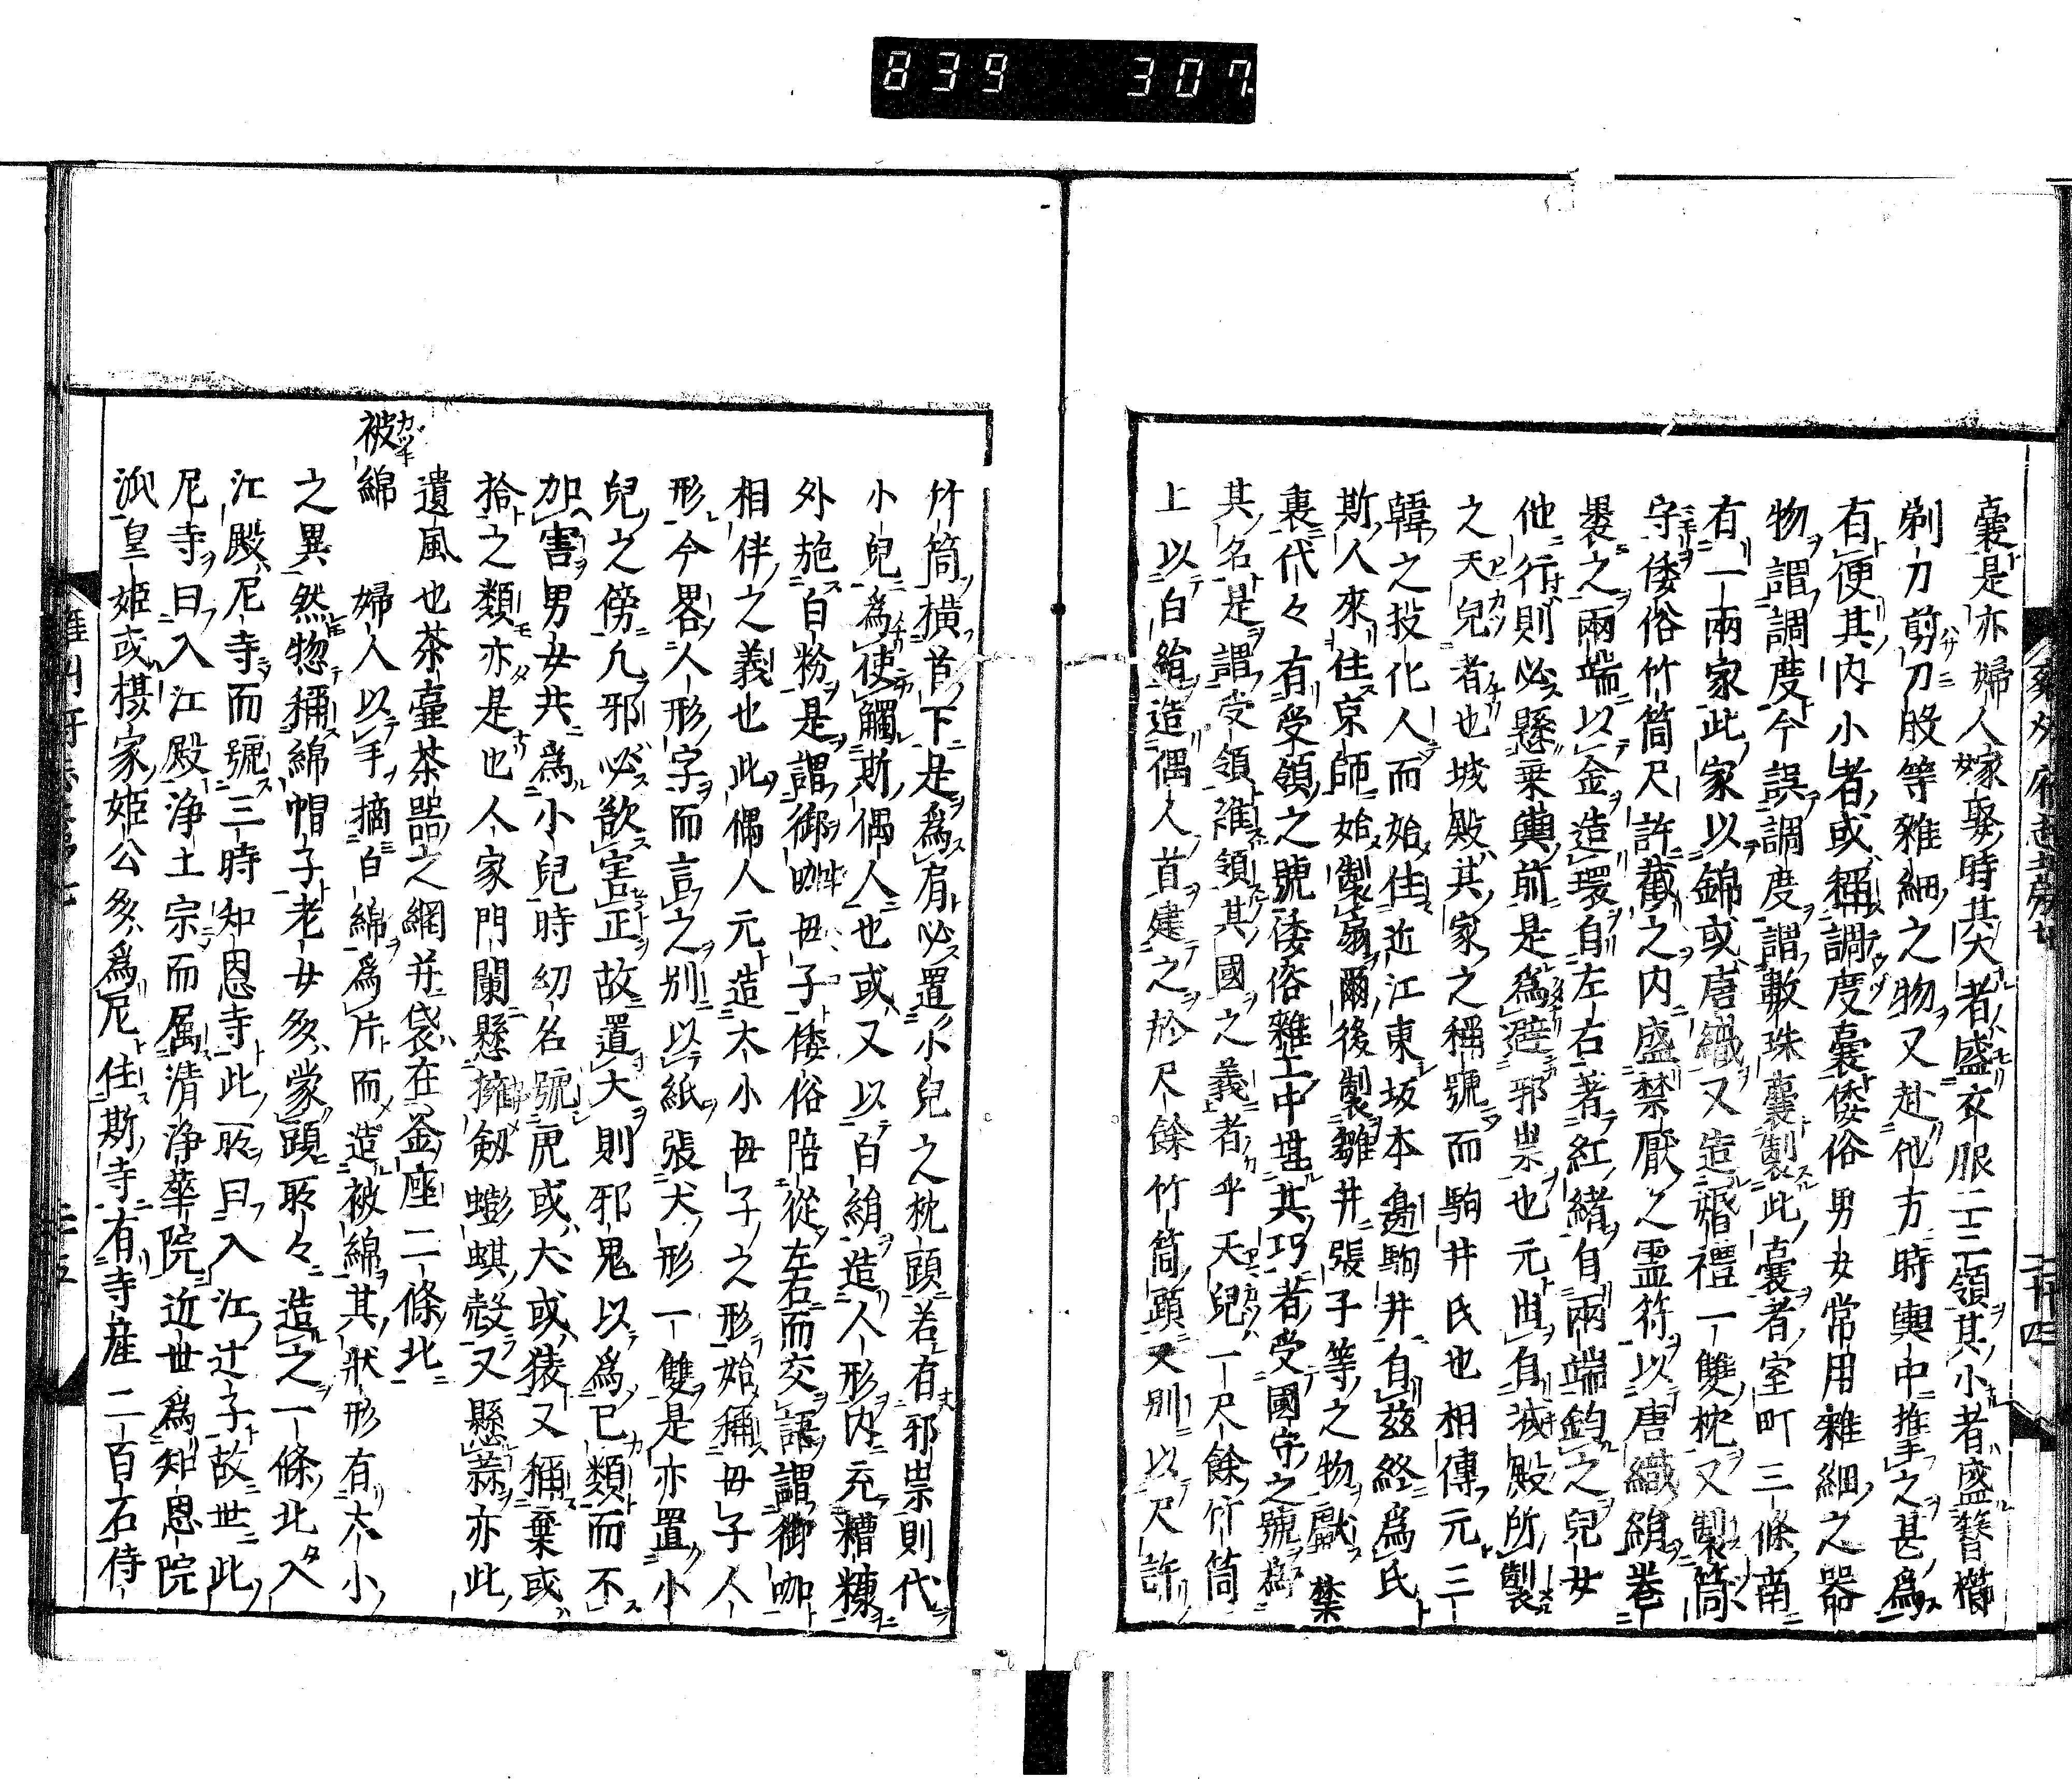 839 307
囊是亦婦人嫁娶時其大者盛衣服二三領其小者盛簪櫛
剃刀剪刀股等雜細之物又赴他方時輿中推之甚爲
有便其内小者或稱調度囊倭俗男女常用雜細之器
物謂調度今誤調度謂數珠囊製此囊者室町三條南
有一兩家此家以錦或唐織又造婚禮一雙枕又製筒
守倭俗竹筒尺許截之内盛禁厭之霊符以唐織絹卷
褁之兩端以金造環自左右著紅緒自兩端鈎之兒女
他行則必懸乗輿前是爲避邪祟也元出自城殿所製
之天兒者也城殿其家之稱號而駒井氏也相傳元三
韓之投化人而始住近江東坂本邊駒井自茲終爲氏
斯人來住京師始製扇爾後製雛并張子等之物獻禁
裏代々有受領之號倭俗雜工中堪其巧者受國守之號
其名是謂受領雖領其國之義者乎天兒一尺餘竹筒
上以白絹造偶人首建之於尺餘竹筒頭又別以尺許
竹筒橫首下是爲肩必置小兒之枕頭若有邪祟則代
小兒爲使觸斯偶人也或又以白絹造人形内充糟糠
外施白粉是謂御伽母子倭俗陪從左右而交語謂御伽
相伴之義也此偶人元造大小母子之形始稱母子人
形今畧人形字而言之別以紙張犬形一雙是亦置小
兒之傍凢邪必欲害正故置犬則邪鬼以爲已類而不
加害男女共爲小兒時幼名號虎或犬或猿又稱棄或
拾之類亦是也人家門闌懸擁剱蟛蜞殻又懸蒜亦此
遺風也茶臺茶器之網并袋在釜座二條北
被綿 婦人以手摘白綿爲片而造被綿其狀形有大小
之異然惣稱綿帽子老女多蒙頭所々造之一條北入
江殿尼寺而號三時知恩寺此所曰入江辻子故世此
尼寺曰入江殿浄土宗而属清浄華院近世爲知恩院
派皇姫或摂家姫公多爲尼住斯寺有寺産二百石侍